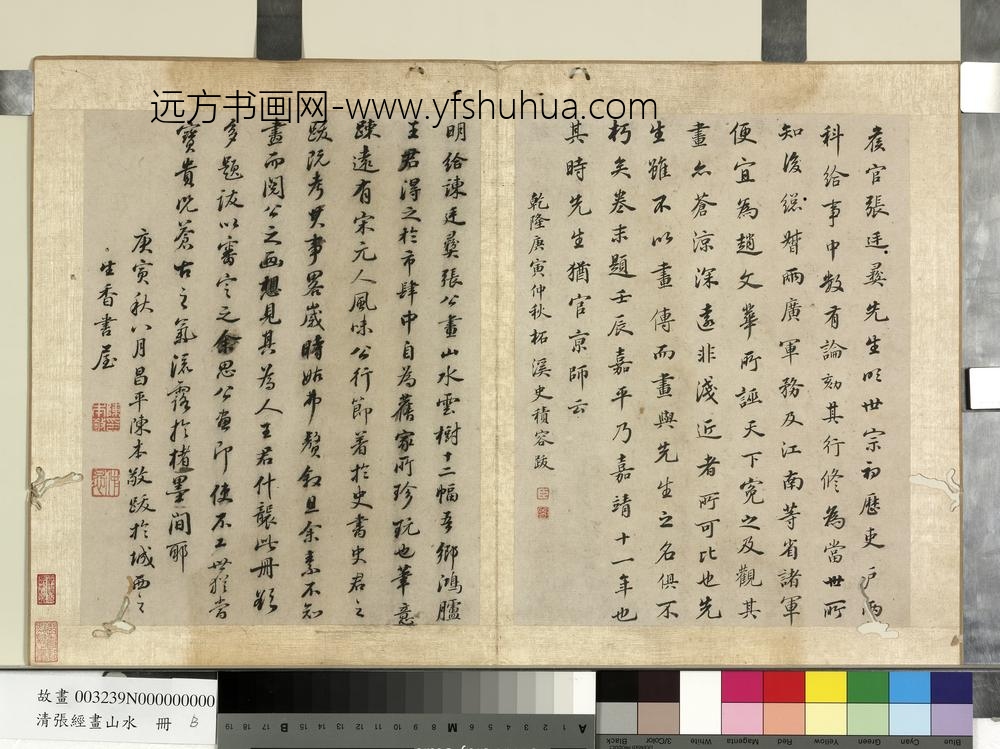 远方书画网-www.yfshuhua.com
侯官張廷彞先生明世宗初歷吏戶兩
科給事中數有論劾其行修為當世所
知後總督兩廣軍務及江南等省諸軍
便宜為趙文華所誣天下寃之及觀其
畫亦蒼涼深遠非淺近者所可比也先
生雖不以畫傳而畫與先生之名俱不
朽矣卷末題壬辰嘉平乃嘉靖十一年也
其時先生猶官京師云
乾隆庚寅仲秋柘溪史積容跋
明給諫廷彞張公畫山水雲樹十二幅吾鄉鴻臚
王君得之於市肆中自為舊家所珍玩也筆意
疎遠有宋元人風味公行節著於史書史君之
跋阮考其事畧嵗時姑弗贅敘且余素不知
畫而閱公之画想見其為人王君什襲此冊欲
多題跋以審定之余思公畫即使不工世猶當
寶貴况蒼古之氣流露於楮墨間耶
庚寅秋八月昌平陳本敬跋於城西之
生香書屋
故畫 003239N000000000
清張經畫山水 冊 B
19 18 17 16 15 B 12 11 10 9 8 M 6 5 4 3 2 A 1
Black
3/Color
White
Magenta
Red
Yellow
Green
Cyan
Blue